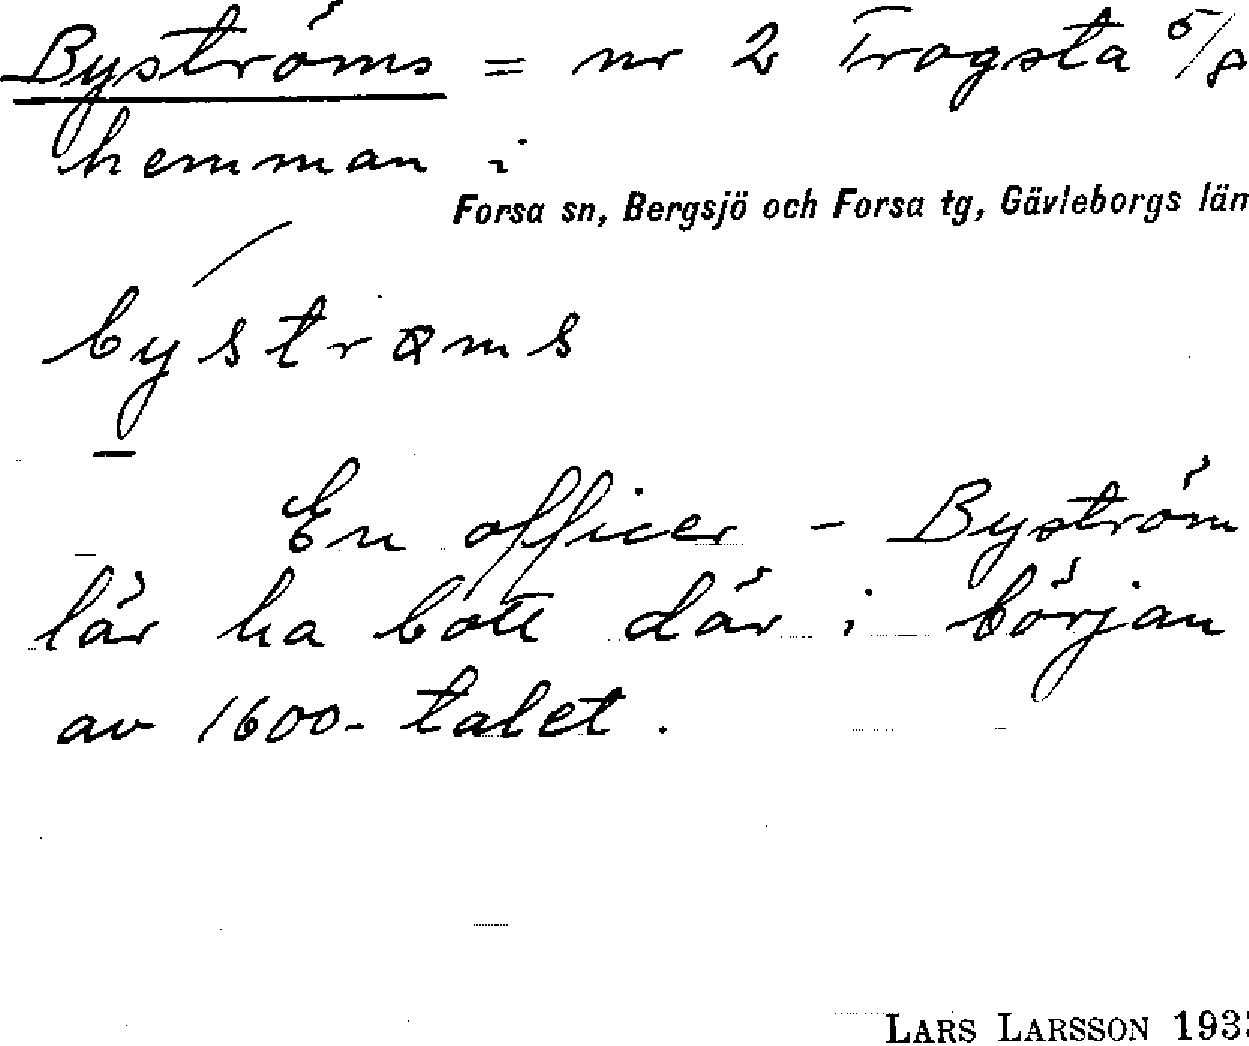 Byströms = nr 2 Trogsta 5/8
hemman i
Forsa sn, Bergsjö och Forsa tg, Gävleborgs län
býstrøms
En officer - Byström
lär ha bott där i början
av 1600-talet.
LARS LARSSON 193